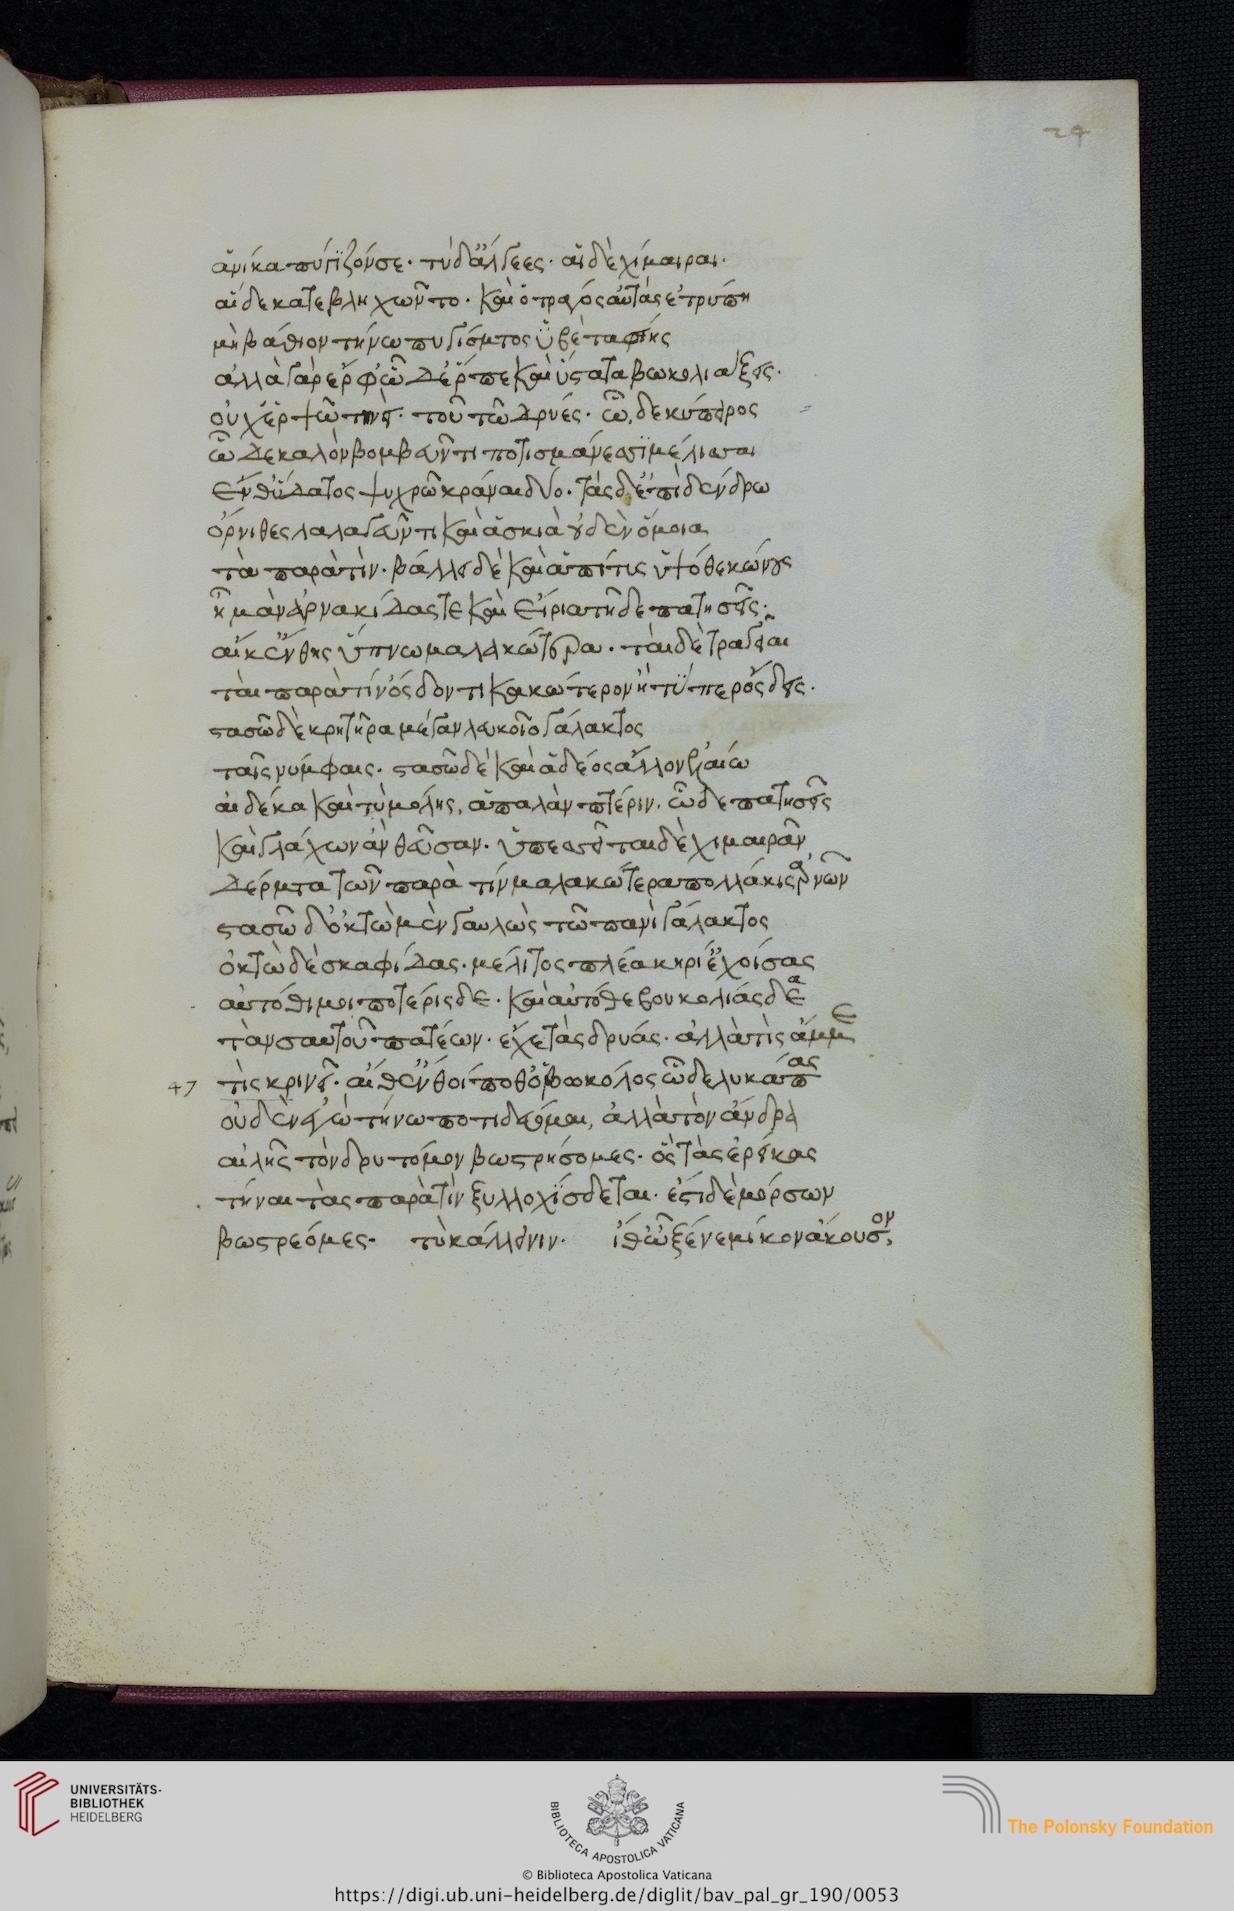 24
ἁνίκα πυγίζον σε. τὺ δ' ἄλγεες. αἱ δὲ χίμαιραι.
αἵδε κατεβληχῶντο. καὶ ὁ τράγος αὐτὰς ἐτρύπη
μὴ βάθιον τήνω πυγίσματος ὑβὲ ταφείης
ἀλλὰ γὰρ ἕρφ' ὧδ' ἕρπε καὶ ὕστατα βωκολιάξεις.
οὐχ ἕρψῶ τηνεῖ. τουτῶ δρυές. ὧδε κύπερος
ὧδε καλὸν βομβεῦντι ποτὶ σμάνεσσι μέλισσαι
ἔνθ' ὕδατος ψυχρῶ κρᾶναι δύο. ταὶ δ' ἐπὶ δένδρω
ὄρνιθες λαλαγεῦντι καὶ ἁ σκιὰ οὐδὲν ὅμοια
τᾷ παρὰ τίν. βάλλει δὲ καὶ ἁ πίτις ὑψόθε κώνους
ἦ μὰν ἀρνακίδας τε καὶ εἴρια τῇδε πατησεῖς.
αἴκ' ἔνθῃς ὕπνω μαλακώτερα. ταὶ δὲ τραγεῖαι
ταὶ παρὰ τὶν ὄσδοντι κακώτερον ἢ τύ περ ὄσδεις.
στασῶ δὲ κρητῆρα μέγαν λευκοῖο γάλακτος
ταῖς νύμφαις. στασῶ δὲ καὶ ἁδέος ἄλλον ἐλαίω
αἰ δέ κα καὶ τὺ μόλῃς, ἁπαλὰν πτέριν. ὧδε πατησεῖς
καὶ γλάχων' ἀνθεῦσαν. ὑπεσσεῖται δὲ χιμαιρᾶν
δέρματα τῶν παρὰ τὶν μαλακώτερα πολλάκις ἀρνῶν
στασῶ δ' ὀκτὼ μὲν γαυλὼς τῶ πανὶ γάλακτος
ὀκτὼ δὲ σκαφίδας. μέλιτος πλέα κηρί' ἐχοίσας
αὐτόθι μοι ποτέρισδε. καὶ αὐτόθε βουκολιάσδεα
τὰν σαυτοῦ πατέων. ἔχε τὰς δρυάς. ἀλλὰ τὶς ἄμμε
47 τὶς κρινεῖ. αἴθ' ἔνθοι ποθ' ὁ βωκόλος ὧδε λυκώπας
οὐδὲν ἐγὼ τήνω ποτιδεύομαι, ἀλλὰ τὸν ἄνδρα
αἰ λῇς τὸν δρυτόμον βωστρήσομες. ὃς τὰς ἐρείκας
τήνας τὰς παρὰ τὶν ξυλλοχίσδεται. ἐστὶ δὲ μόρσων
βωστρέομες. τὺ κάλλει νιν. ἴθ' ὦ ξένε μικὸν ἄκουσον,
UNIVERSITÄTS-
BIBLIOTHEK
HEIDELBERG
BIBLIOTECA APOSTOLICA VATICANA
The Polonsky Foundation
© Biblioteca Apostolica Vaticana
https://digi.ub.uni-heidelberg.de/diglit/bav_pal_gr_190/0053